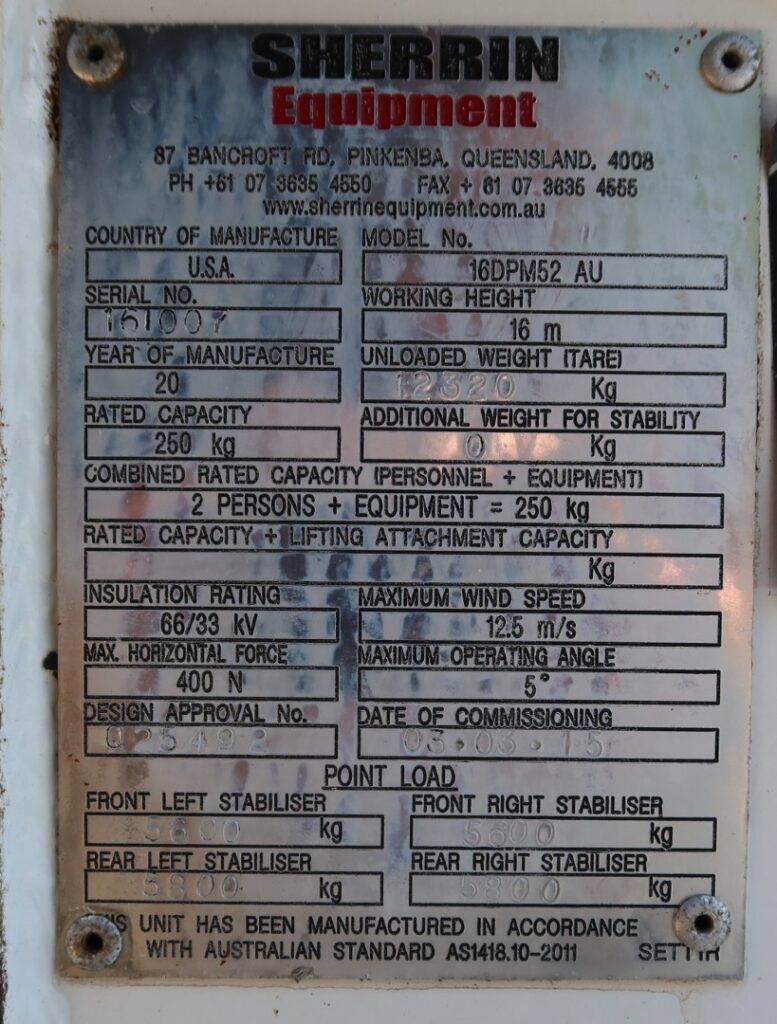 SHERRIN
Equipment
87 BANCROFT RD, PINKENBA, QUEENSLAND, 4008
PH +61 07 3635 4550 FAX + 61 07 3635 4555
www.sherrinequipment.com.au
COUNTRY OF MANUFACTURE MODEL No.
U.S.A. 16DPM52 AU
SERIAL NO. WORKING HEIGHT
161007 16 m
YEAR OF MANUFACTURE UNLOADED WEIGHT (TARE)
20 12320 Kg
RATED CAPACITY ADDITIONAL WEIGHT FOR STABILITY
250 kg 0 Kg
COMBINED RATED CAPACITY (PERSONNEL + EQUIPMENT)
2 PERSONS + EQUIPMENT = 250 kg
RATED CAPACITY + LIFTING ATTACHMENT CAPACITY
Kg
INSULATION RATING MAXIMUM WIND SPEED
66/33 kV 12.5 m/s
MAX. HORIZONTAL FORCE MAXIMUM OPERATING ANGLE
400 N 5°
DESIGN APPROVAL No. DATE OF COMMISSIONING
Q25492 03.03.15
POINT LOAD
FRONT LEFT STABILISER FRONT RIGHT STABILISER
kg 5600 kg
REAR LEFT STABILISER REAR RIGHT STABILISER
5800 kg 5800 kg
UNIT HAS BEEN MANUFACTURED IN ACCORDANCE
WITH AUSTRALIAN STANDARD AS1418.10-2011